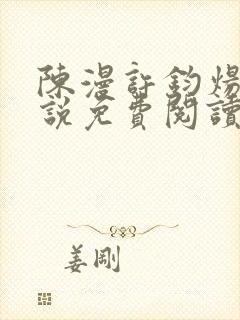 陳漫許鈞煬
說免費閱讀
姜剛